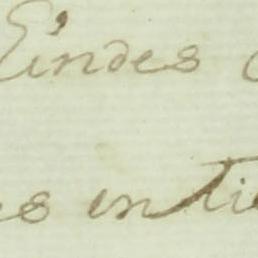 Eindes
es en ti